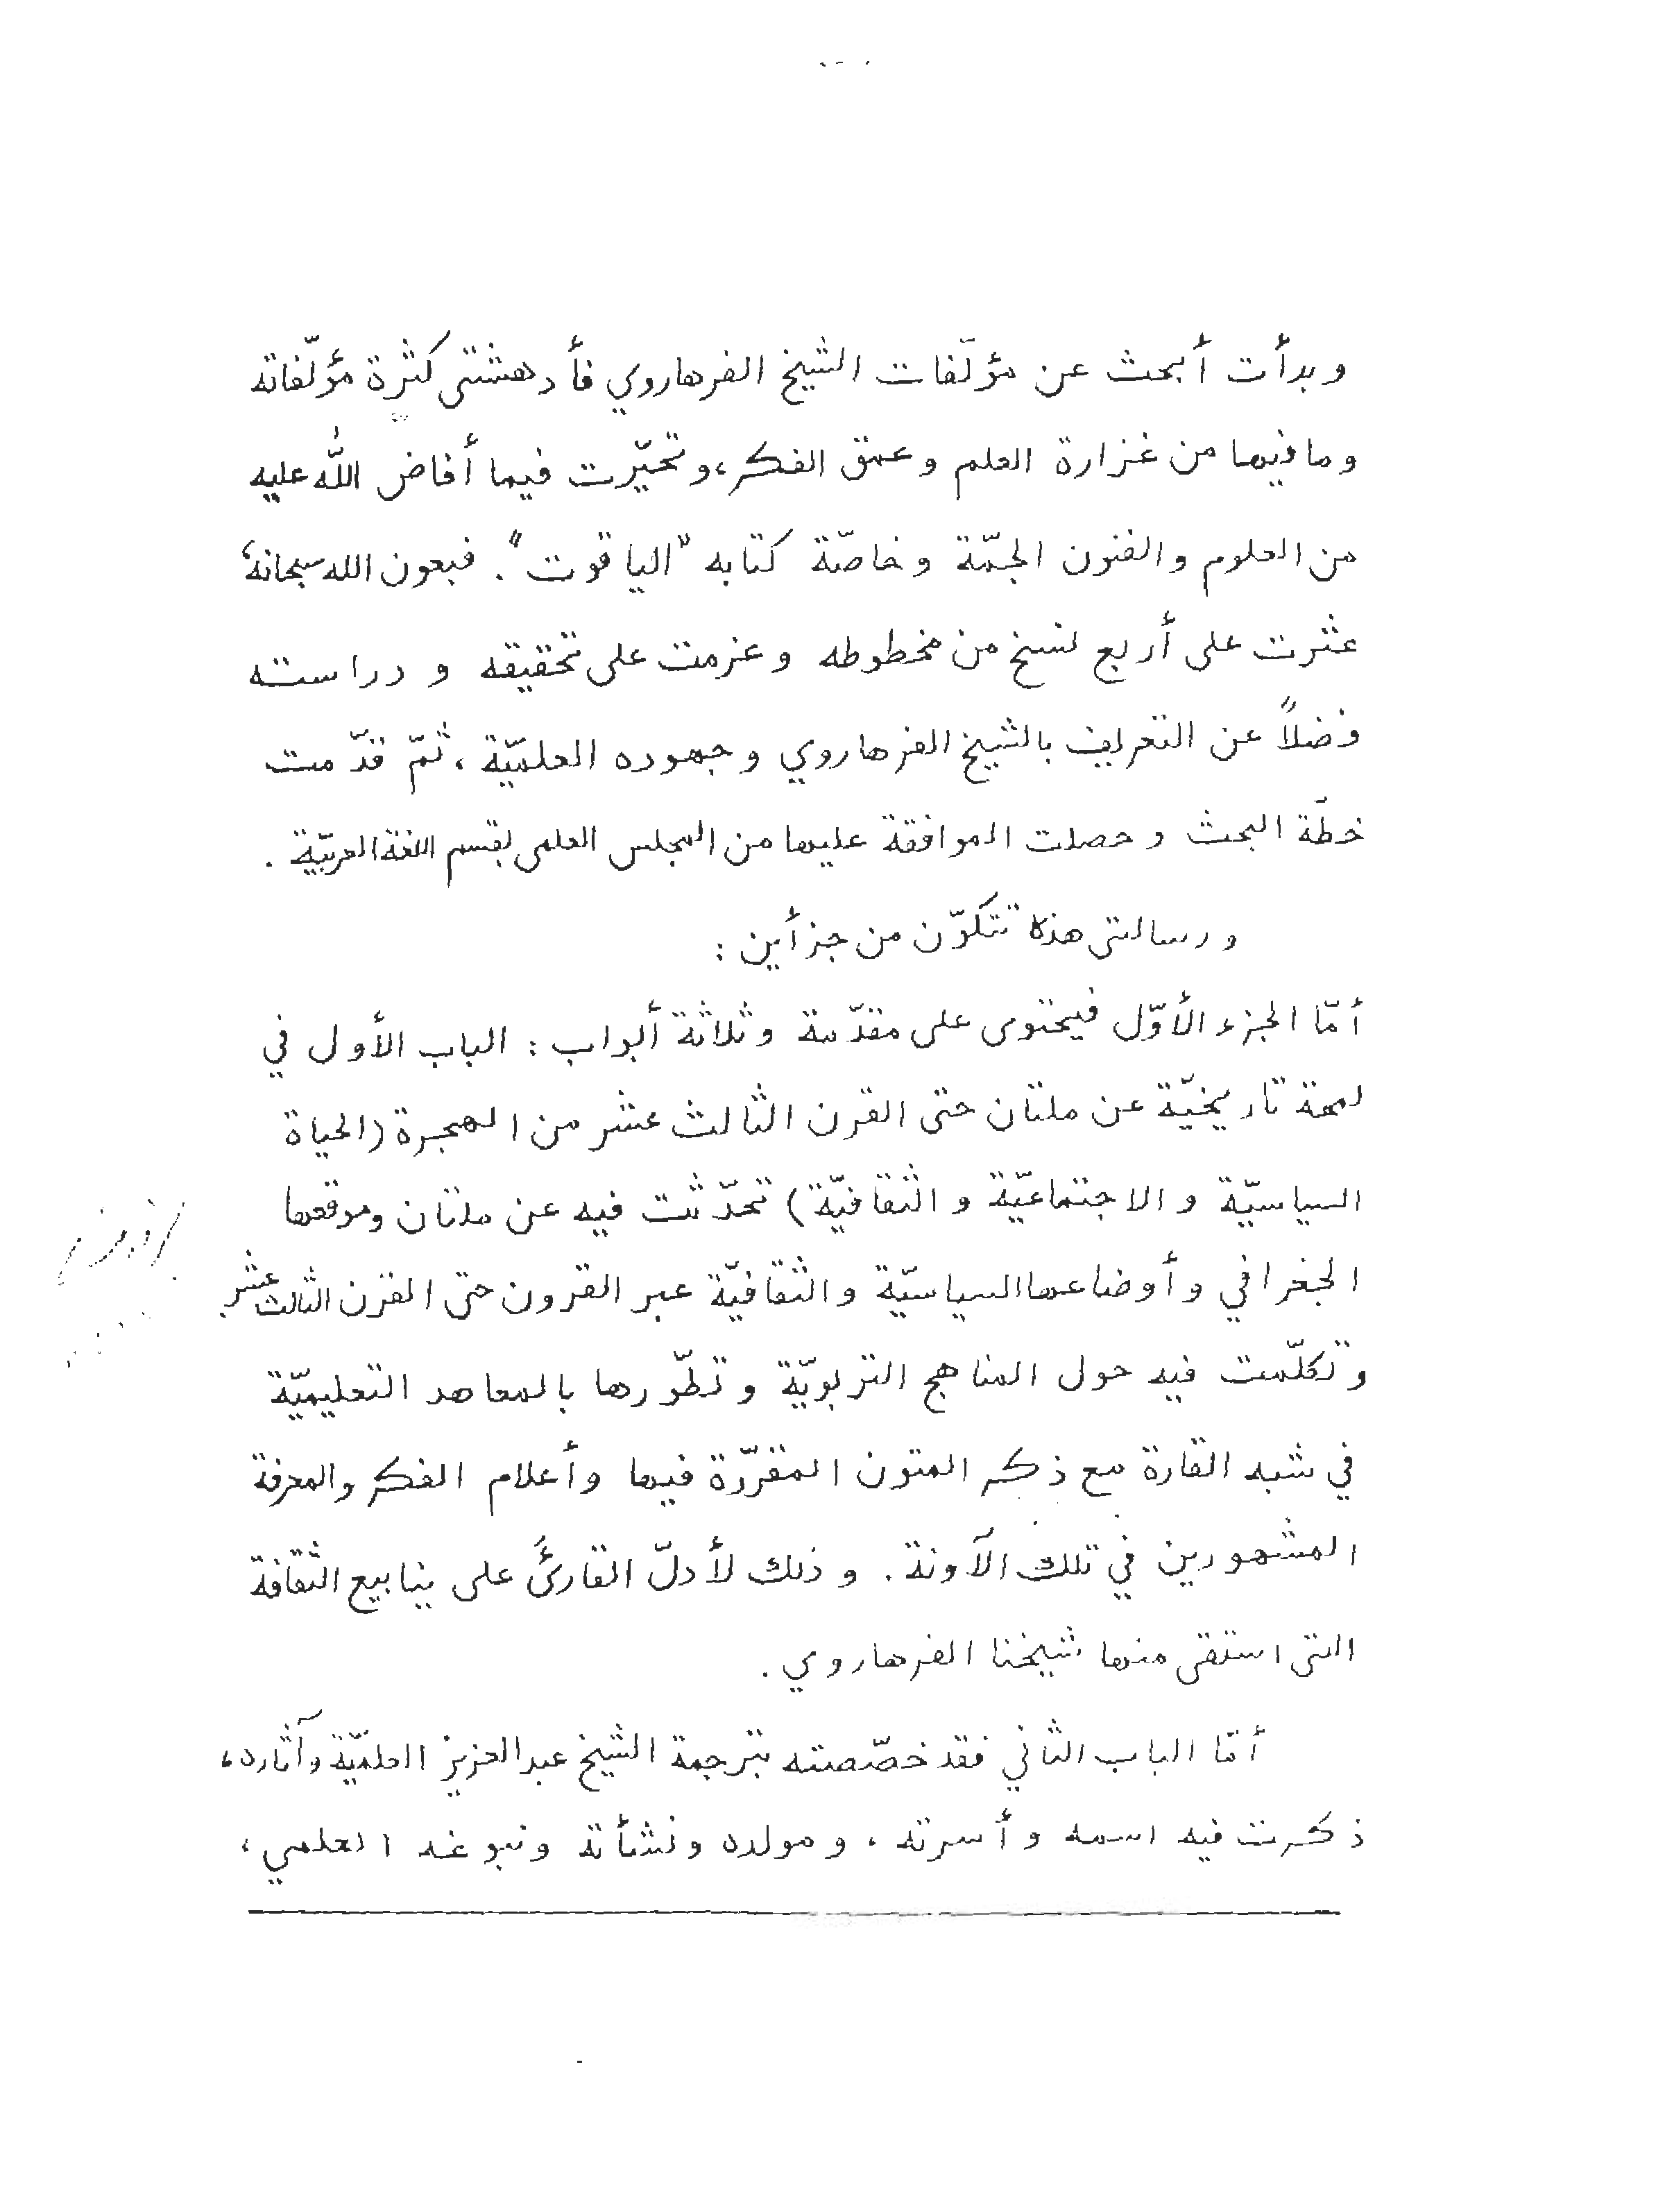 وبدأت أبحث عن مؤلّفات الشيخ الفرهاروي فأدهشتى كثرة مؤلّفاته
وما فيها من غزارة العلم وعمق الفكر، وتحيّرت فيما أفاض الله عليه
من العلوم والفنون الجمّة وخاصّة كتابه "الياقوت". فبعون الله سبحانه،
عثرت على أربع نسخ من مخطوطه وعزمت على تحقيقه ودراسته
فضلاً عن التعريف بالشيخ الفرهاروي وجهوده العلميّة، ثمّ قدّمت
خطّة البحث وحصلت الموافقة عليها من المجلس العلمى لقسم اللغة العربيّة.
ورسالتى هذه تتكوّن من جزأين:
أمّا الجزء الأوّل فيحتوى على مقدّمة وثلاثة أبواب: الباب الأول في
لمحة تاريخيّة عن ملتان حتى القرن الثالث عشر من الهجرة (الحياة
السياسيّة والاجتماعيّة والثقافيّة) تحدّثت فيه عن ملتان وموقعها
الجغرافي وأوضاعها السياسيّة والثقافيّة عبر القرون حتى القرن الثالث عشر.
وتكلّمت فيه حول المناهج التربويّة وتطّورها بالمعاهد التعليميّة
في شبه القارة مع ذكر المتون المقررّة فيها وأعلام الفكر والمعرفة
المشهورين في تلك الآونة. وذلك لأدلّ القارئَ على ينابيع الثقافة
التى استقى منها شيخنا الفرهاروي.
أمّا الباب الثاني فقد خصّصته بترجمة الشيخ عبد العزيز العلميّة وآثاره،
ذكرت فيه اسمه وأسرته، ومولده ونشأته ونبوغه العلمي،